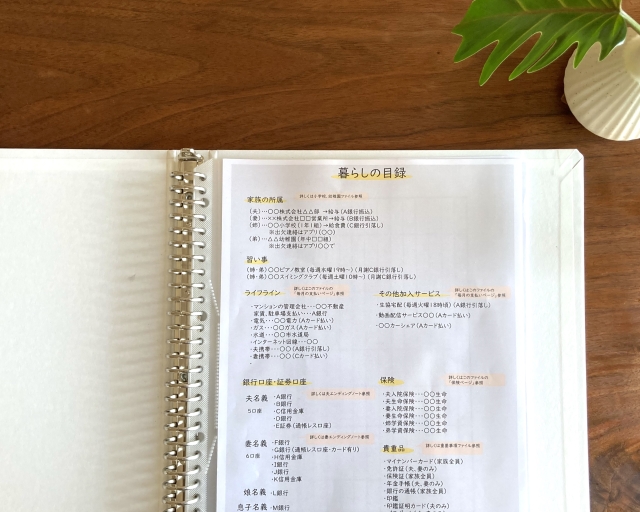 暮らしの目録
家族の所属
詳しくは小学校、幼稚園ファイル参照
(夫)…〇〇株式会社△△部 →給与(A銀行振込)
(妻)…××株式会社□□営業所→給与(B銀行振込)
(姉)…〇〇小学校(1年1組)→給食費(C銀行引落し)
※出欠連絡はアプリ(〇〇)
(弟)…△△幼稚園(年中□□組)
※出欠連絡はアプリ〇〇で
習い事
(姉・弟)〇〇ピアノ教室(毎週水曜19時〜)(月謝C銀行引落し)
(姉・弟)〇〇スイミングクラブ(毎週土曜10時〜)(月謝C銀行引落し)
ライフライン
詳しくはこのファイルの
「毎月の支払いページ」参照
・マンションの管理会社・・・〇〇不動産
家賃、駐車場支払い・・・A銀行
・電気・・・〇〇電力(Aカード払い)
・ガス・・・□□ガス(Aカード払い)
・水道・・・〇〇市水道局
・インターネット回線・・・〇〇
・夫携帯・・・〇〇(A銀行引落し)
・妻携帯・・・〇〇(Cカード払い)
その他加入サービス
詳しくはこのファイルの
「毎月の支払いページ」参照
・生協宅配(毎週火曜18時頃)(A銀行引落し)
・動画配信サービス〇〇(Aカード払い)
・〇〇カーシェア(Aカード払い)
銀行口座・証券口座
詳しくは夫エンディングノート参照
夫名義
5口座
・A銀行
・B銀行
・C信用金庫
・D銀行
・E証券(通帳レス口座)
詳しくは妻エンディングノート参照
妻名義
6口座
・F銀行
・G銀行(通帳レス口座・カード有り)
・H信用金庫
・I銀行
・J銀行
・K信用金庫
娘名義 ・L銀行
息子名義 ・M銀行
保険
詳しくはこのファイルの
「保険ページ」参照
・夫入院保険・・・〇〇生命
・夫生命保険・・・〇〇生命
・妻入院保険・・・〇〇生命
・妻生命保険・・・〇〇生命
・姉学資保険・・・〇〇生命
・弟学資保険・・・〇〇生命
貴重品
詳しくは重要事項ファイル参照
・マイナンバーカード(家族全員)
・免許証(夫、妻のみ)
・保険証(家族全員)
・年金手帳(夫、妻のみ)
・銀行の通帳(家族全員)
・印鑑
・印鑑証明カード(夫のみ)